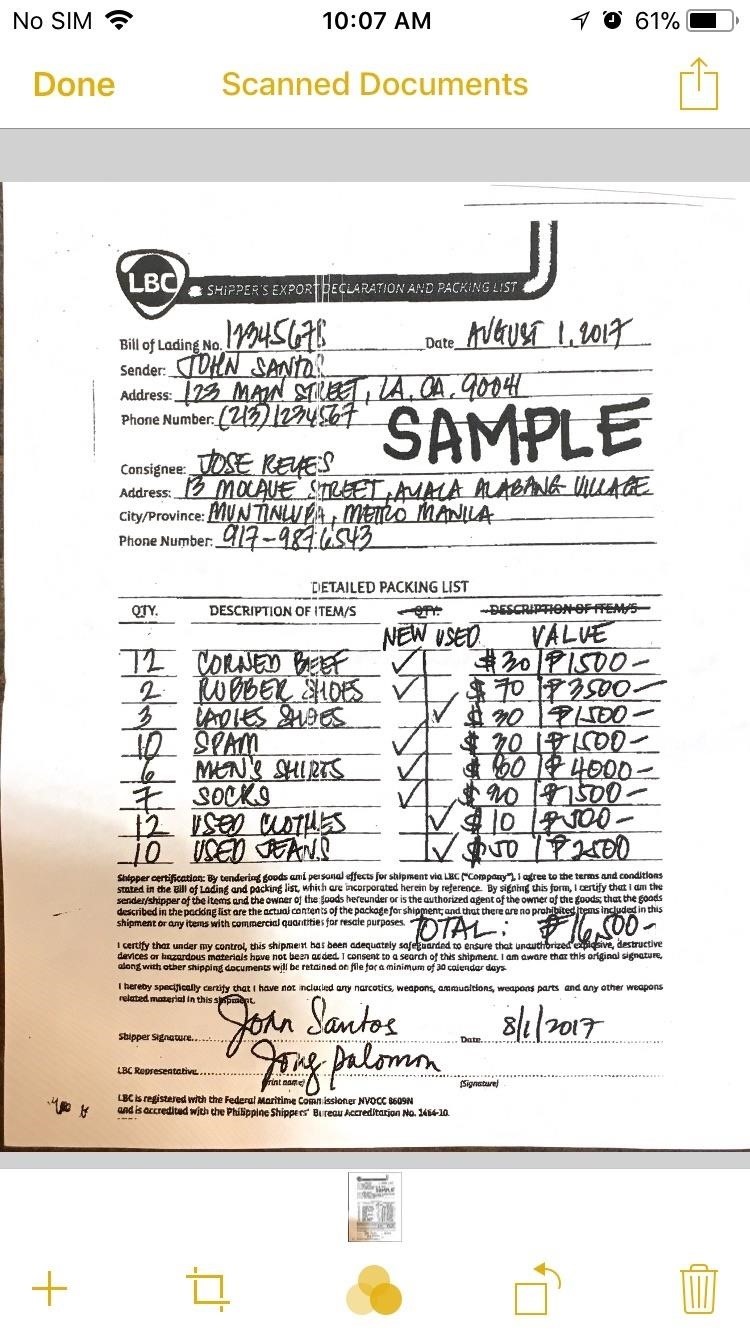 No SIM 10:07 AM 61%
Done Scanned Documents
LBC SHIPPER'S EXPORT DECLARATION AND PACKING LIST
Bill of Lading No. 12345678 Date AUGUST 1, 2017
Sender: JOHN SANTOS
Address: 123 MAIN STREET, LA, CA. 90041
Phone Number: (213) 1234567
SAMPLE
Consignee: JOSE REYES
Address: 13 MOLAVE STREET, AYALA ALABANG VILLAGE
City/Province: MUNTINLUPA, METRO MANILA
Phone Number: 917-987 6543
DETAILED PACKING LIST
QTY. DESCRIPTION OF ITEM/S QTY. DESCRIPTION OF ITEM/S
NEW USED VALUE
12 CORNED BEEF ✓ $30 ₱1500-
2 RUBBER SHOES ✓ $70 ₱3500-
3 LADIES SHOES ✓ $30 ₱1500-
10 SPAM ✓ $30 ₱1500-
6 MEN'S SHIRTS ✓ $80 ₱4000-
7 SOCKS ✓ ₱1500-
12 USED CLOTHES ✓ $10 ₱500-
10 USED JEANS ✓ $50 ₱2500
Shipper certification: By tendering goods and personal effects for shipment via LBC ("Company"), I agree to the terms and conditions
stated in the Bill of Lading and packing list, which are incorporated herein by reference. By signing this form, I certify that I am the
sender/shipper of the items and the owner of the goods hereunder or is the authorized agent of the owner of the goods; that the goods
described in the packing list are the actual contents of the package for shipment; and that there are no prohibited items included in this
shipment or any items with commercial quantities for resale purposes. TOTAL: ₱16,500-
I certify that under my control, this shipment has been adequately safeguarded to ensure that unauthorized explosive, destructive
devices or hazardous materials have not been added. I consent to a search of this shipment. I am aware that this original signature,
along with other shipping documents will be retained on file for a minimum of 30 calendar days.
I hereby specifically certify that I have not included any narcotics, weapons, ammunitions, weapons parts and any other weapons
related material in this shipment.
Shipper Signature John Santos Date 8/1/2017
LBC Representative Jong Palomon
(print name) (Signature)
LBC is registered with the Federal Maritime Commissioner NVOCC 8609N
and is accredited with the Philippine Shippers' Bureau Accreditation No. 1464-10.